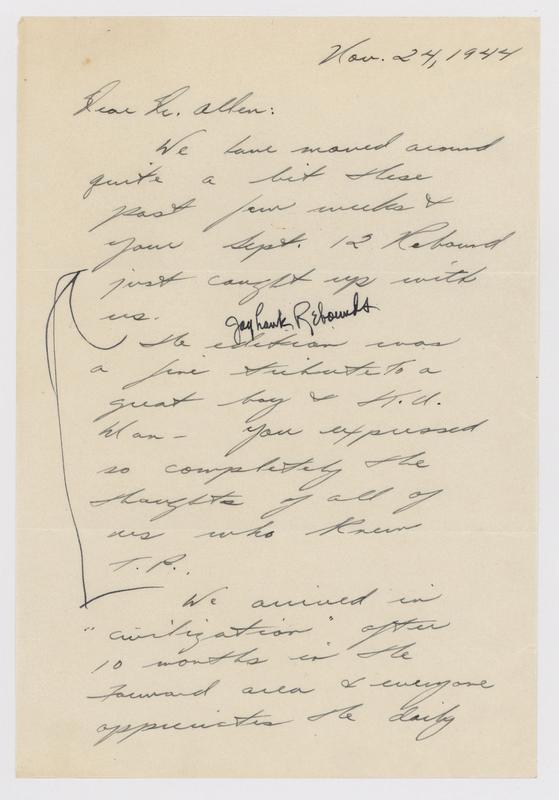 Nov. 24, 1944
Dear Dr. Allen:
We have moved around
quite a bit these
past few weeks &
your Sept. 12 Rebound
just caught up with
us.
Jayhawk Rebounds
The edition was
a fine tribute to a
great boy & K.U.
Man - You expressed
so completely the
thoughts of all of
us who knew
T.P.
We arrived in
"civilization" after
10 months in the
Forward area & everyone
appreciates the daily